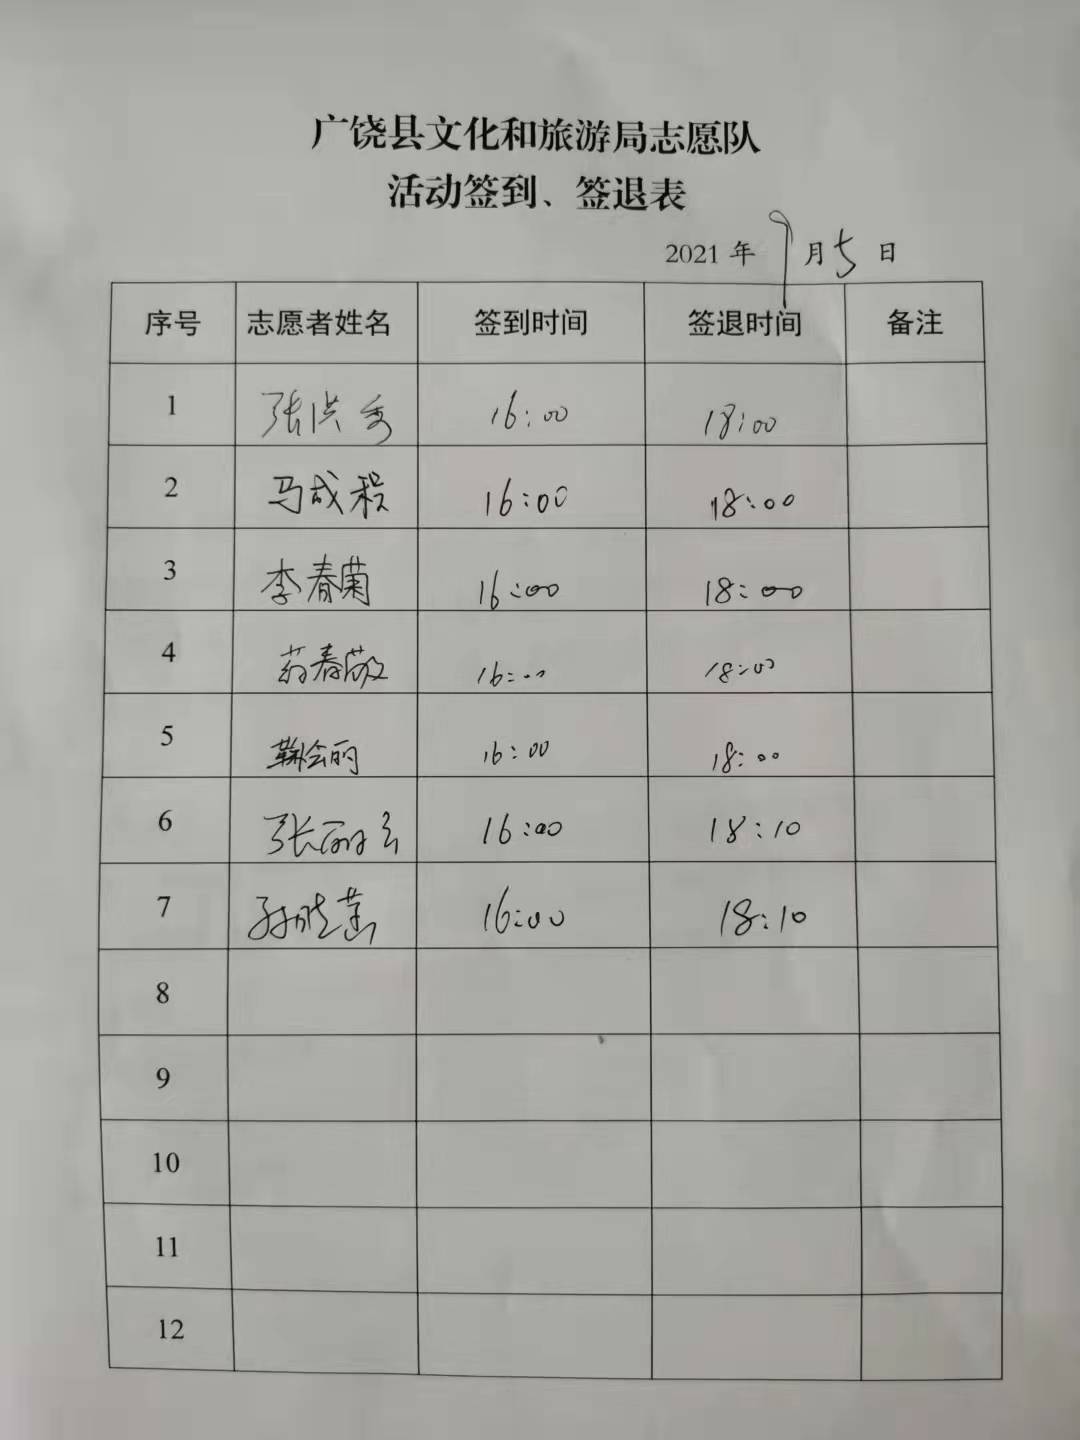 广饶县文化和旅游局志愿队
活动签到、签退表
2021 年 9 月 5 日
序号 志愿者姓名 签到时间 签退时间 备注
1 张洪秀 16:00 18:00
2 马成程 16:00 18:00
3 李春菊 16:00 18:00
4 春敬 16:00 18:00
5 鞠会丽 16:00 18:00
6 张丽云 16:00 18:10
7 孙晓 16:00 18:10
8
9
10
11
12